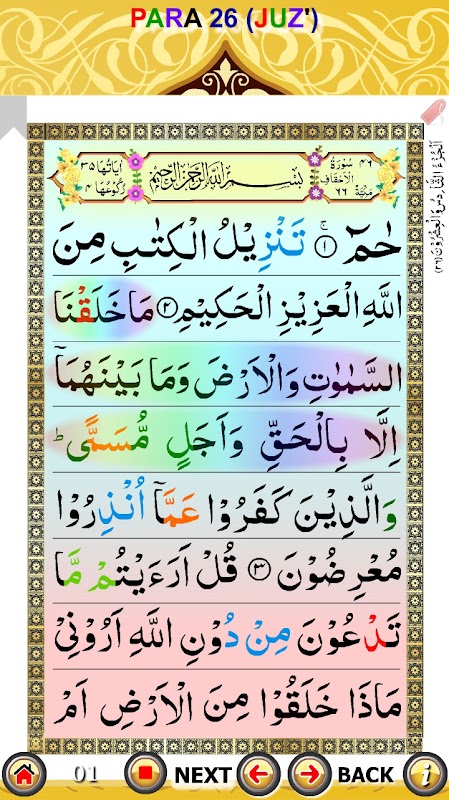 PARA 26 (JUZ')
اَلْجُزْءُ السَّادِسُ وَالْعِشْرُوْنَ (٢٦)
٤٦ سُوْرَةُ الْاَحْقَافِ مَكِّيَّةٌ ٦٦
بِسْمِ اللّٰهِ الرَّحْمٰنِ الرَّحِيْمِ
اٰيَاتُهَا ٣٥
رُكُوْعُهَا ٤
حٰمٓ ۚ ١ تَنْزِيْلُ الْكِتٰبِ مِنَ
اللّٰهِ الْعَزِيْزِ الْحَكِيْمِ ٢ مَا خَلَقْنَا
السَّمٰوٰتِ وَالْاَرْضَ وَمَا بَيْنَهُمَآ
اِلَّا بِالْحَقِّ وَاَجَلٍ مُّسَمًّى ؕ
وَالَّذِيْنَ كَفَرُوْا عَمَّآ اُنْذِرُوْا
مُعْرِضُوْنَ ٣ قُلْ اَرَءَيْتُمْ مَّا
تَدْعُوْنَ مِنْ دُوْنِ اللّٰهِ اَرُوْنِيْ
مَاذَا خَلَقُوْا مِنَ الْاَرْضِ اَمْ
01 NEXT BACK i